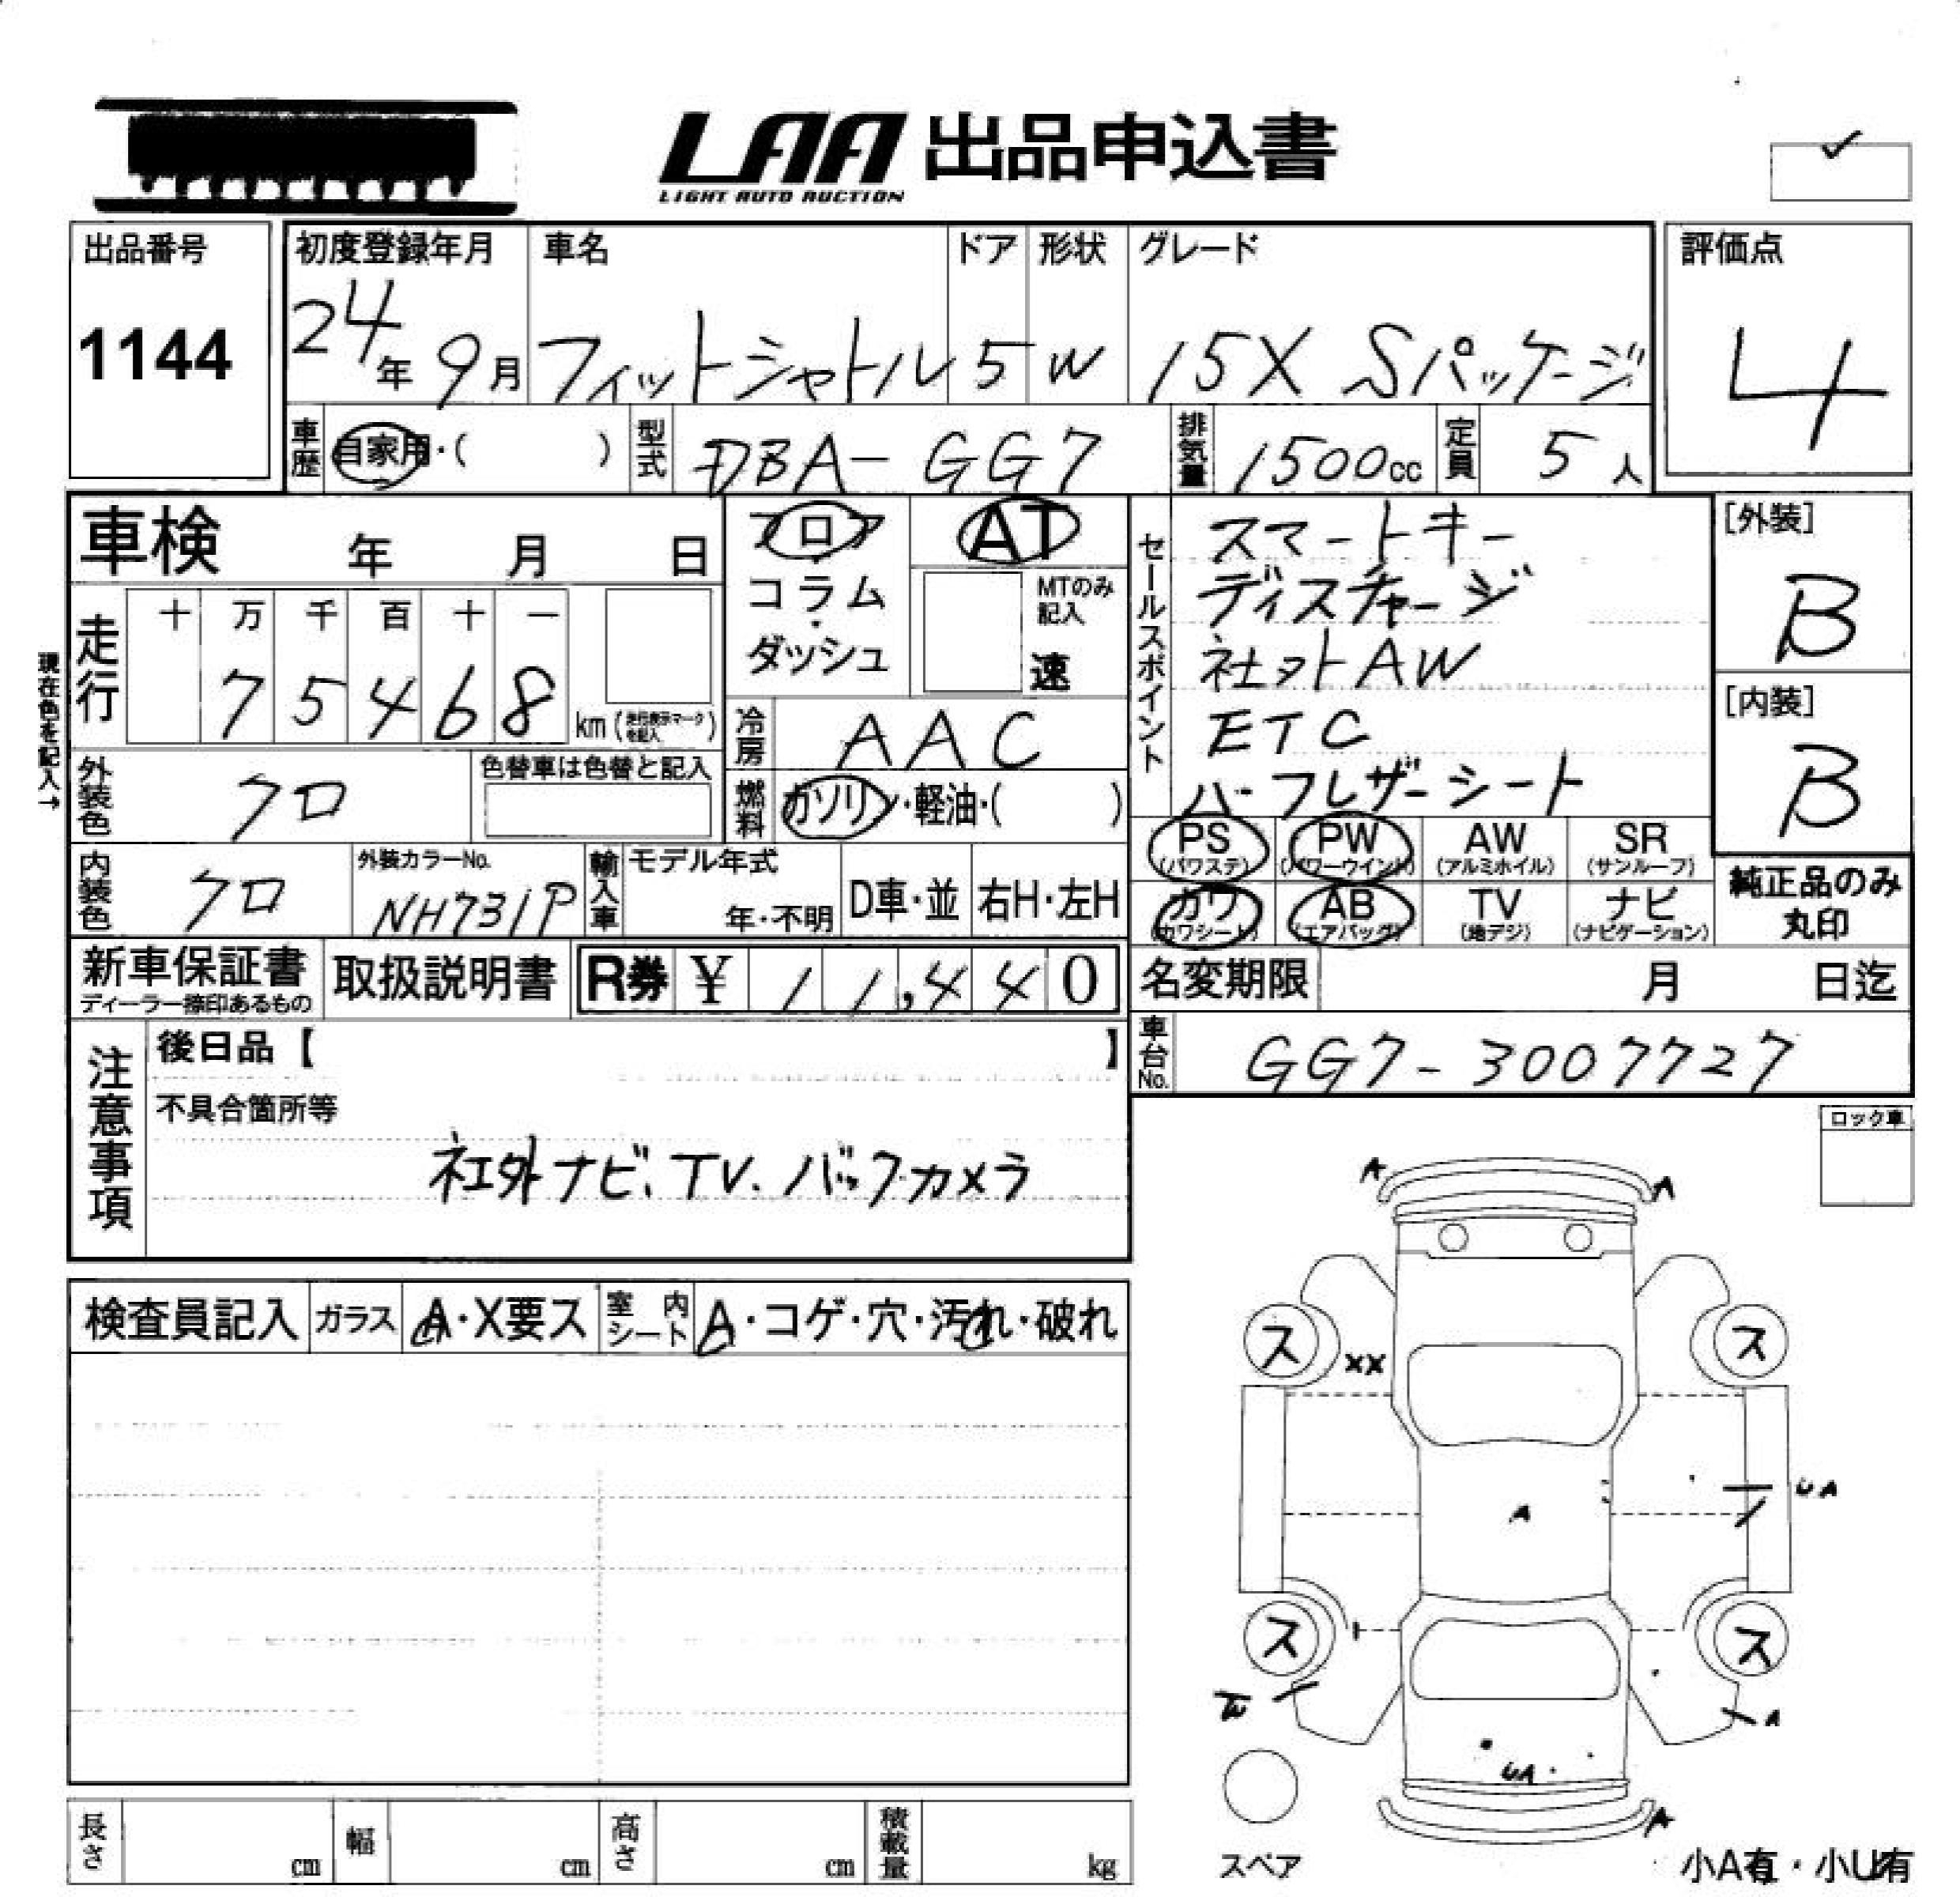 LAA 出品申込書
LIGHT AUTO AUCTION
出品番号
1144
初度登録年月
24年 9月
車名
フィットシャトル
ドア
5
形状
W
グレード
15X Sパッケージ
評価点
4
車歴 自家用・( )
型式 DBA-GG7
排気量 1500cc
定員 5人
車検 年 月 日
フロア
・
コラム
・
ダッシュ
AT
MTのみ
記入
速
セールスポイント
スマートキー
ディスチャージ
社外AW
ETC
ハーフレザーシート
[外装]
B
[内装]
B
現在色を記入→
走行
十 万 千 百 十 一
7 5 4 6 8 km (走行表示マークを記入)
冷房 AAC
外装色 クロ
色替車は色替と記入
燃料 ガソリン・軽油・( )
PS (パワステ)
PW (パワーウインド)
AW (アルミホイル)
SR (サンルーフ)
カワ (カワシート)
AB (エアバッグ)
TV (地デジ)
ナビ (ナビゲーション)
純正品のみ
丸印
内装色 クロ
外装カラーNo.
NH731P
輸入車
モデル年式
年・不明
D車・並
右H・左H
新車保証書
ディーラー捺印あるもの
取扱説明書
R券 ¥ 11,440
名変期限 月 日迄
車台No. GG7-3007727
注意事項
後日品【 】
不具合箇所等
社外ナビ、TV、バックカメラ
ロック車
検査員記入
ガラス A・X要ス
室内シート A・コゲ・穴・汚れ・破れ
A A
ス ス
XX
UA
A
ス ス
W
A
UA
A
スペア
小A有・小U有
長さ cm
幅 cm
高さ cm
積載量 kg